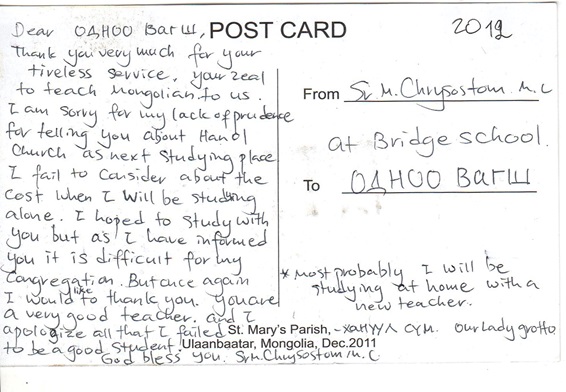 Dear ОДНОО Вагш,
POST CARD
2012
Thank you very much for your
tireless service, your zeal
to teach Mongolian to us.
I am sorry for my lack of prudence
for telling you about Handl
Church as next studying place
I fail to consider about the
cost when I will be studying
alone. I hoped to study with
you but as I have informed
you it is difficult for my
Congregation. But once again
I would like to thank you. you are
a very good teacher. and I
apologize all that I failed
to be a good student.
God bless you. Sr M. Chrysostom M.C.
From Sr. M. Chrysostom. M.C
at Bridge school.
To ОДНОО Вагш
* most probably I will be
studying at home with a
new teacher.
St. Mary's Parish, - хаНУУЛ СҮМ. Our Lady grotto
Ulaanbaatar, Mongolia, Dec.2011